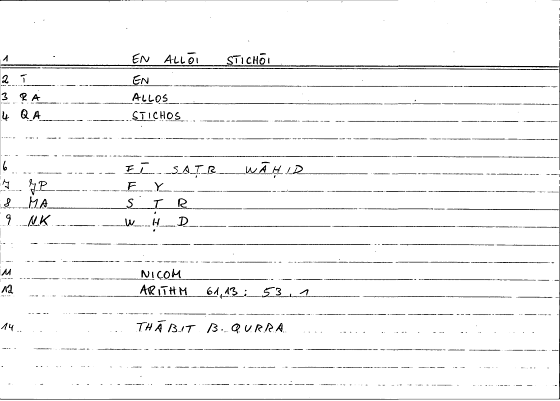 1 EN ALLŌI STICHŌI
2 T EN
3 RA ALLOS
4 QA STICHOS
6 FĪ SAṬR WĀḤID
7 JP F Y
8 MA S Ṭ R
9 NK W Ḥ D
11 NICOM
12 ARITHM 61,13: 53,1
14 THĀBIT B. QURRA